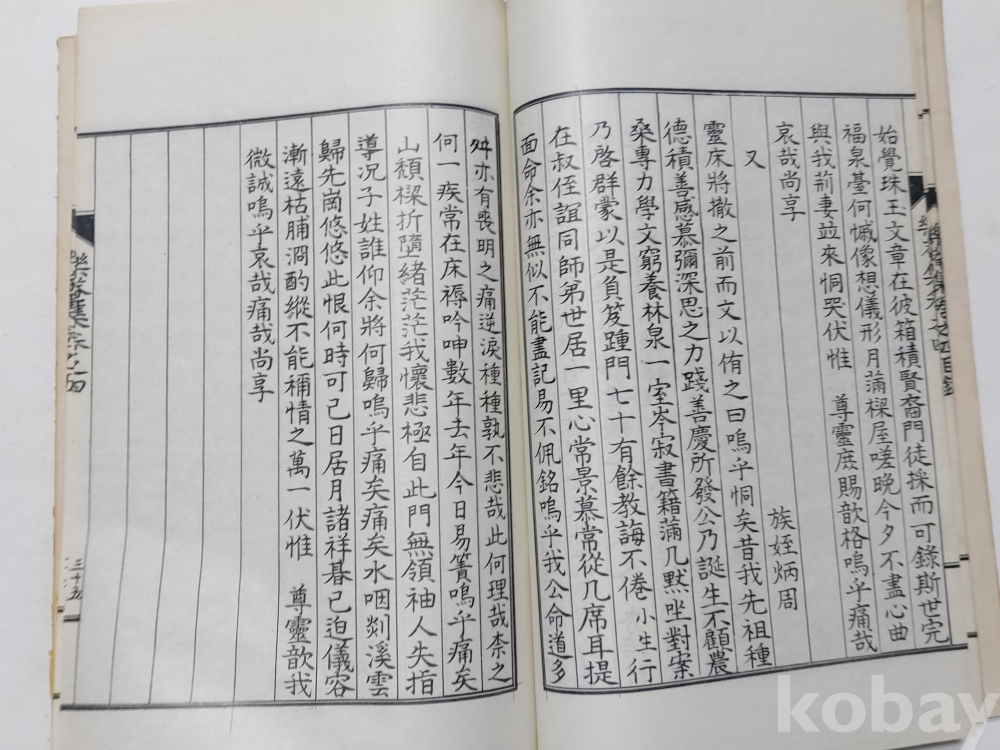 始覺珠玉文章在彼箱積賢裔門徒採而可錄斯世完
福泉臺何慽像想儀形月滿樑屋嗟晚今夕不盡心曲
與我荊妻並來恫哭伏惟 尊靈庶賜歆格嗚乎痛哉
哀哉尚享
又 族姪炳周
靈床將撤之前而文以侑之曰嗚乎恫矣昔我先祖種
德積善感慕彌深思之力踐善慶所發公乃誕生不顧農
桑專力學文窮養林泉一室岑寂書籍滿几默坐對案
乃啓群蒙以是負笈踵門七十有餘教誨不倦小生行
在叔侄誼同師弟世居一里心常景慕常從几席耳提
面命余亦無似不能盡記易不佩銘嗚乎我公命道多
舛亦有喪明之痛逆淚種種孰不悲哉此何理哉柰之
何一疾常在床褥吟呻數年去年今日易簀嗚乎痛矣
山頹樑折墮緒茫茫我懷悲極自此門無領袖人失指
導况子姓誰仰余將何歸嗚乎痛矣痛矣水咽剡溪雲
歸先崗悠悠此恨何時可已日居月諸祥朞已迫儀容
漸遠枯脯泂酌縱不能補情之萬一伏惟 尊靈歆我
微誠嗚乎哀哉痛哉尚享
三十五
kobay